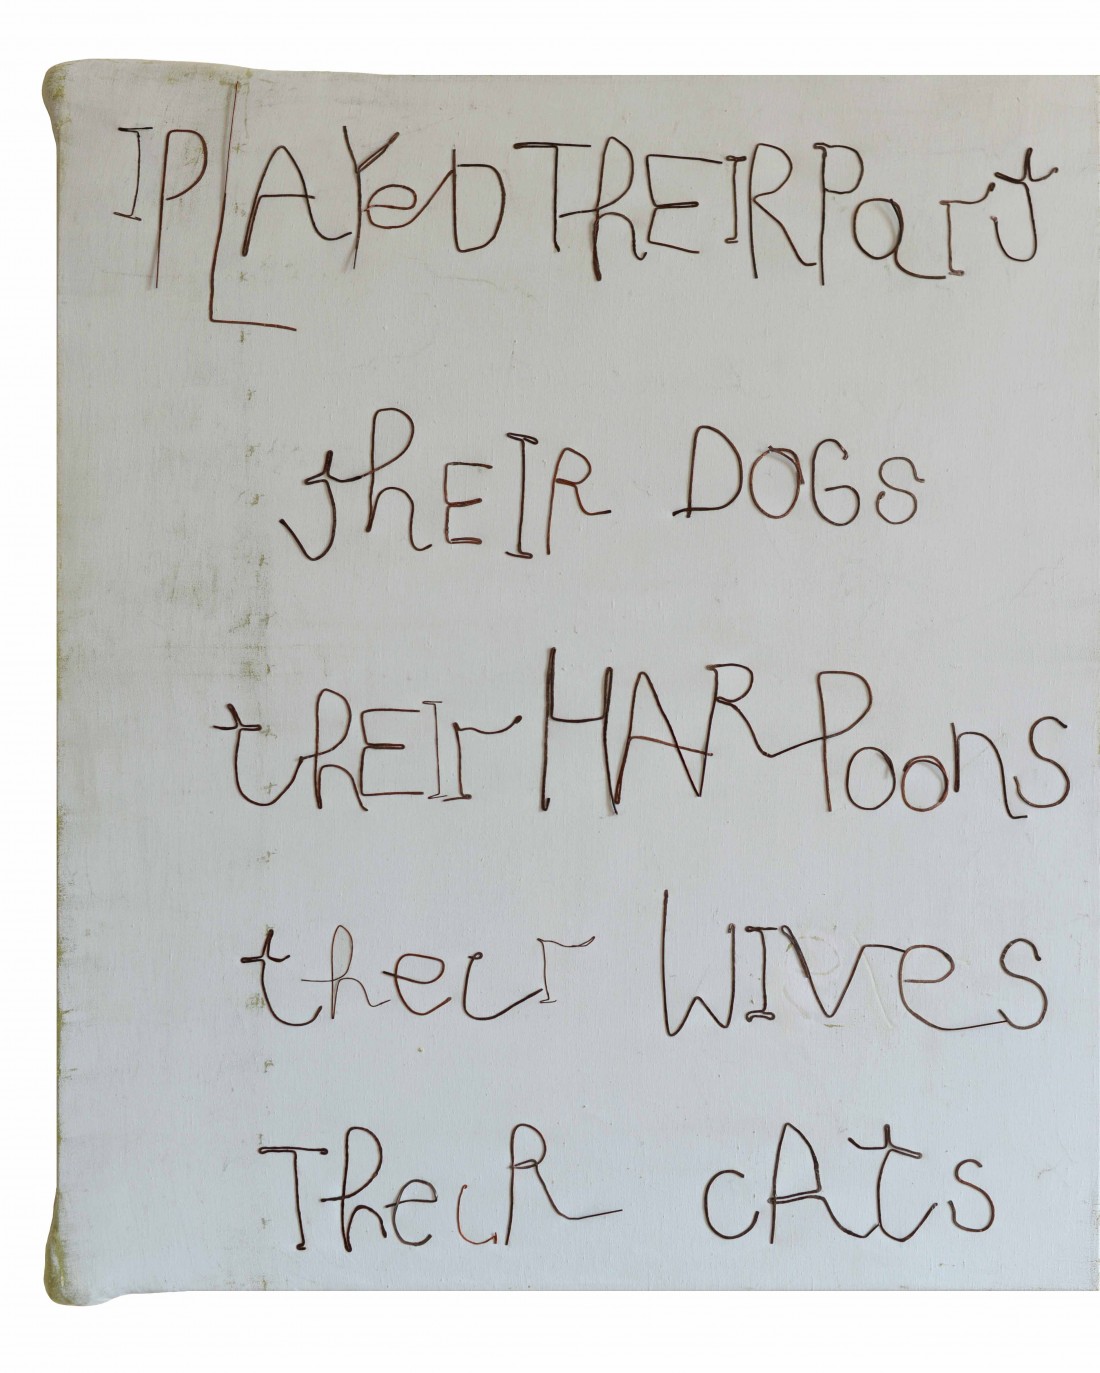 I PLAYeD ThEIR Part
thEIR DOGS
thEIr HARPoons
their WIVes
TheiR cAts